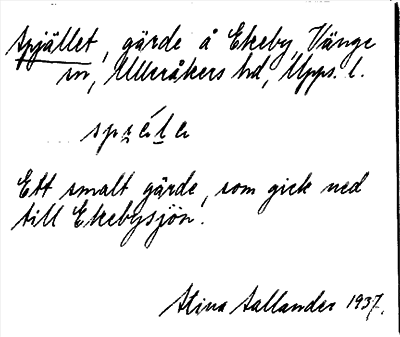 Spjället, gärde å Ekeby, Vänge
sn, Ulleråkers hd, Upps. l.
Ett smalt gärde, som gick ned
till Ekebysjön.
Stina Sallander 1937.